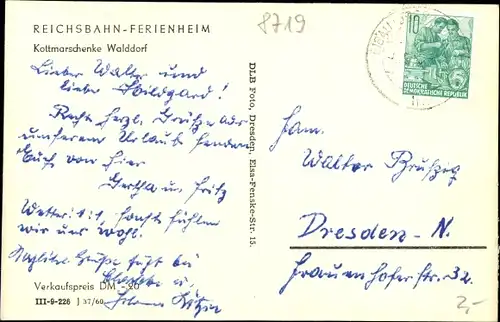 REICHSBAHN-FERIENHEIM
Kottmarschenke Walddorf
8719
Lieber Walter und
liebe Hildgard!
Recht herzl. Grüße aus
unserem Urlaub senden
Euch von hier
Gertha u. Fritz
Wetter ist, sonst fühlen
wir uns wohl.
Grüße fügt bei
Verkaufspreis DM -.20
III-9-226 J 37/60
DLB Foto, Dresden, Elsa-Fenske-Str. 15.
10
DEUTSCHE
DEMOKRATISCHE REPUBLIK
Fam.
Walter
Dresden-N.
Frauenhoferstr. 32
2,-